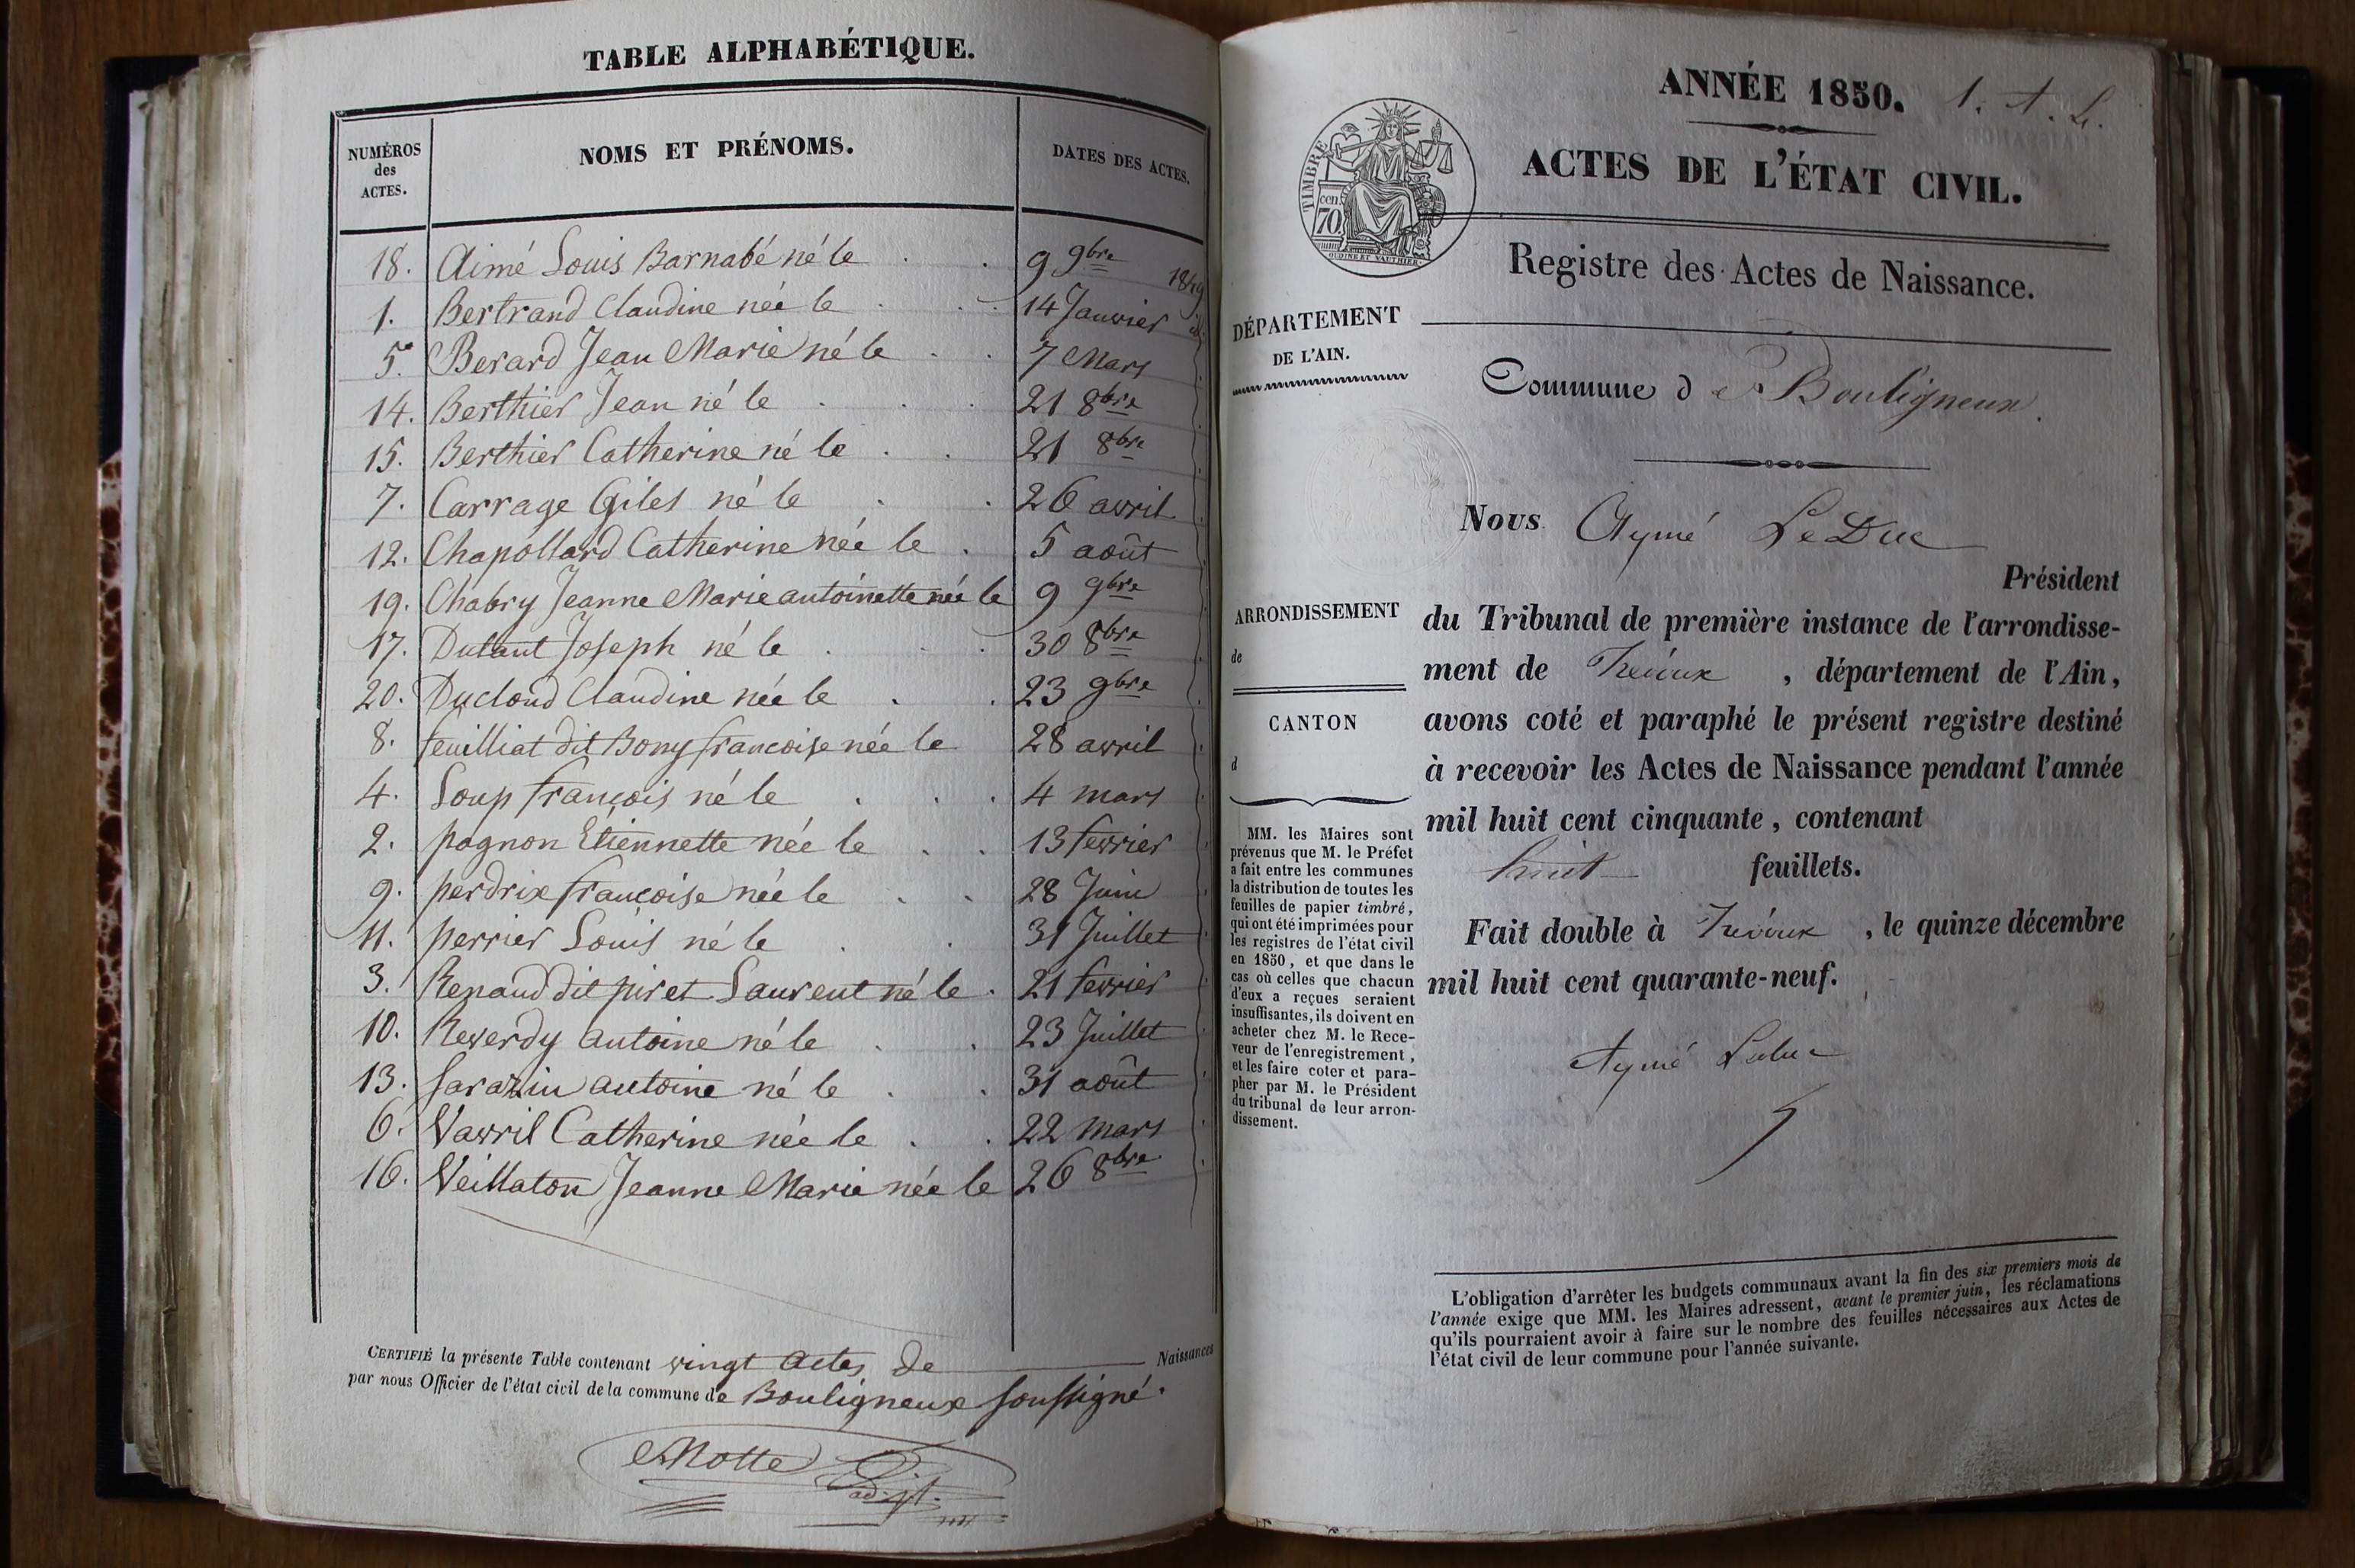 TABLE ALPHABÉTIQUE.
NUMÉROS des ACTES. NOMS ET PRÉNOMS. DATES DES ACTES.
18. Aimé Louis Barnabé né le 9 9bre 1849
1. Bertrand Claudine née le 14 Janvier id.
5. Berard Jean Marie né le 7 Mars
14. Berthier Jean né le 21 8bre
15. Berthier Catherine né le 21 8bre
7. Carrage Giles né le 26 avril
12. Chapollard Catherine née le 5 août
19. Chabry Jeanne Marie antoinette née le 9 9bre
17. Dutant Joseph né le 30 8bre
20. Ducloud Claudine née le 23 9bre
8. feuilliat dit Bony francoise née le 28 avril
4. Loup françois né le 4 mars
2. pagnon Etiennette née le 13 fevrier
9. perdrix francoise née le 28 Juin
11. perrier Louis né le 31 Juillet
3. Renaud dit piret Laurent né le 21 fevrier
10. Reverdy antoine né le 23 Juillet
13. Sarazin antoine né le 31 août
6. Vavril Catherine née le 22 mars
16. Veillaton Jeanne Marie née le 26 8bre
CERTIFIÉ la présente Table contenant vingt Actes de Naissances
par nous Officier de l'état civil de la commune de Bouligneux soussigné.
Motte
adjt.
ANNÉE 1850. 1. A. L.
ACTES DE L'ÉTAT CIVIL.
TIMBRE
70 cen.
OUDINE ET VAUTHIER.
Registre des Actes de Naissance.
DÉPARTEMENT
DE L'AIN.
Commune de Bouligneux.
Nous Aymé LeDuc
Président
ARRONDISSEMENT
de
CANTON
d
du Tribunal de première instance de l'arrondisse-
ment de Trévoux, département de l'Ain,
avons coté et paraphé le présent registre destiné
à recevoir les Actes de Naissance pendant l'année
mil huit cent cinquante, contenant
huit feuillets.
Fait double à Trévoux, le quinze décembre
mil huit cent quarante-neuf.
Aymé Leduc
MM. les Maires sont
prévenus que M. le Préfet
a fait entre les communes
la distribution de toutes les
feuilles de papier timbré,
qui ont été imprimées pour
les registres de l'état civil
en 1850, et que dans le
cas où celles que chacun
d'eux a reçues seraient
insuffisantes, ils doivent en
acheter chez M. le Rece-
veur de l'enregistrement,
et les faire coter et para-
pher par M. le Président
du tribunal de leur arron-
dissement.
L'obligation d'arrêter les budgets communaux avant la fin des six premiers mois de
l'année exige que MM. les Maires adressent, avant le premier juin, les réclamations
qu'ils pourraient avoir à faire sur le nombre des feuilles nécessaires aux Actes de
l'état civil de leur commune pour l'année suivante.